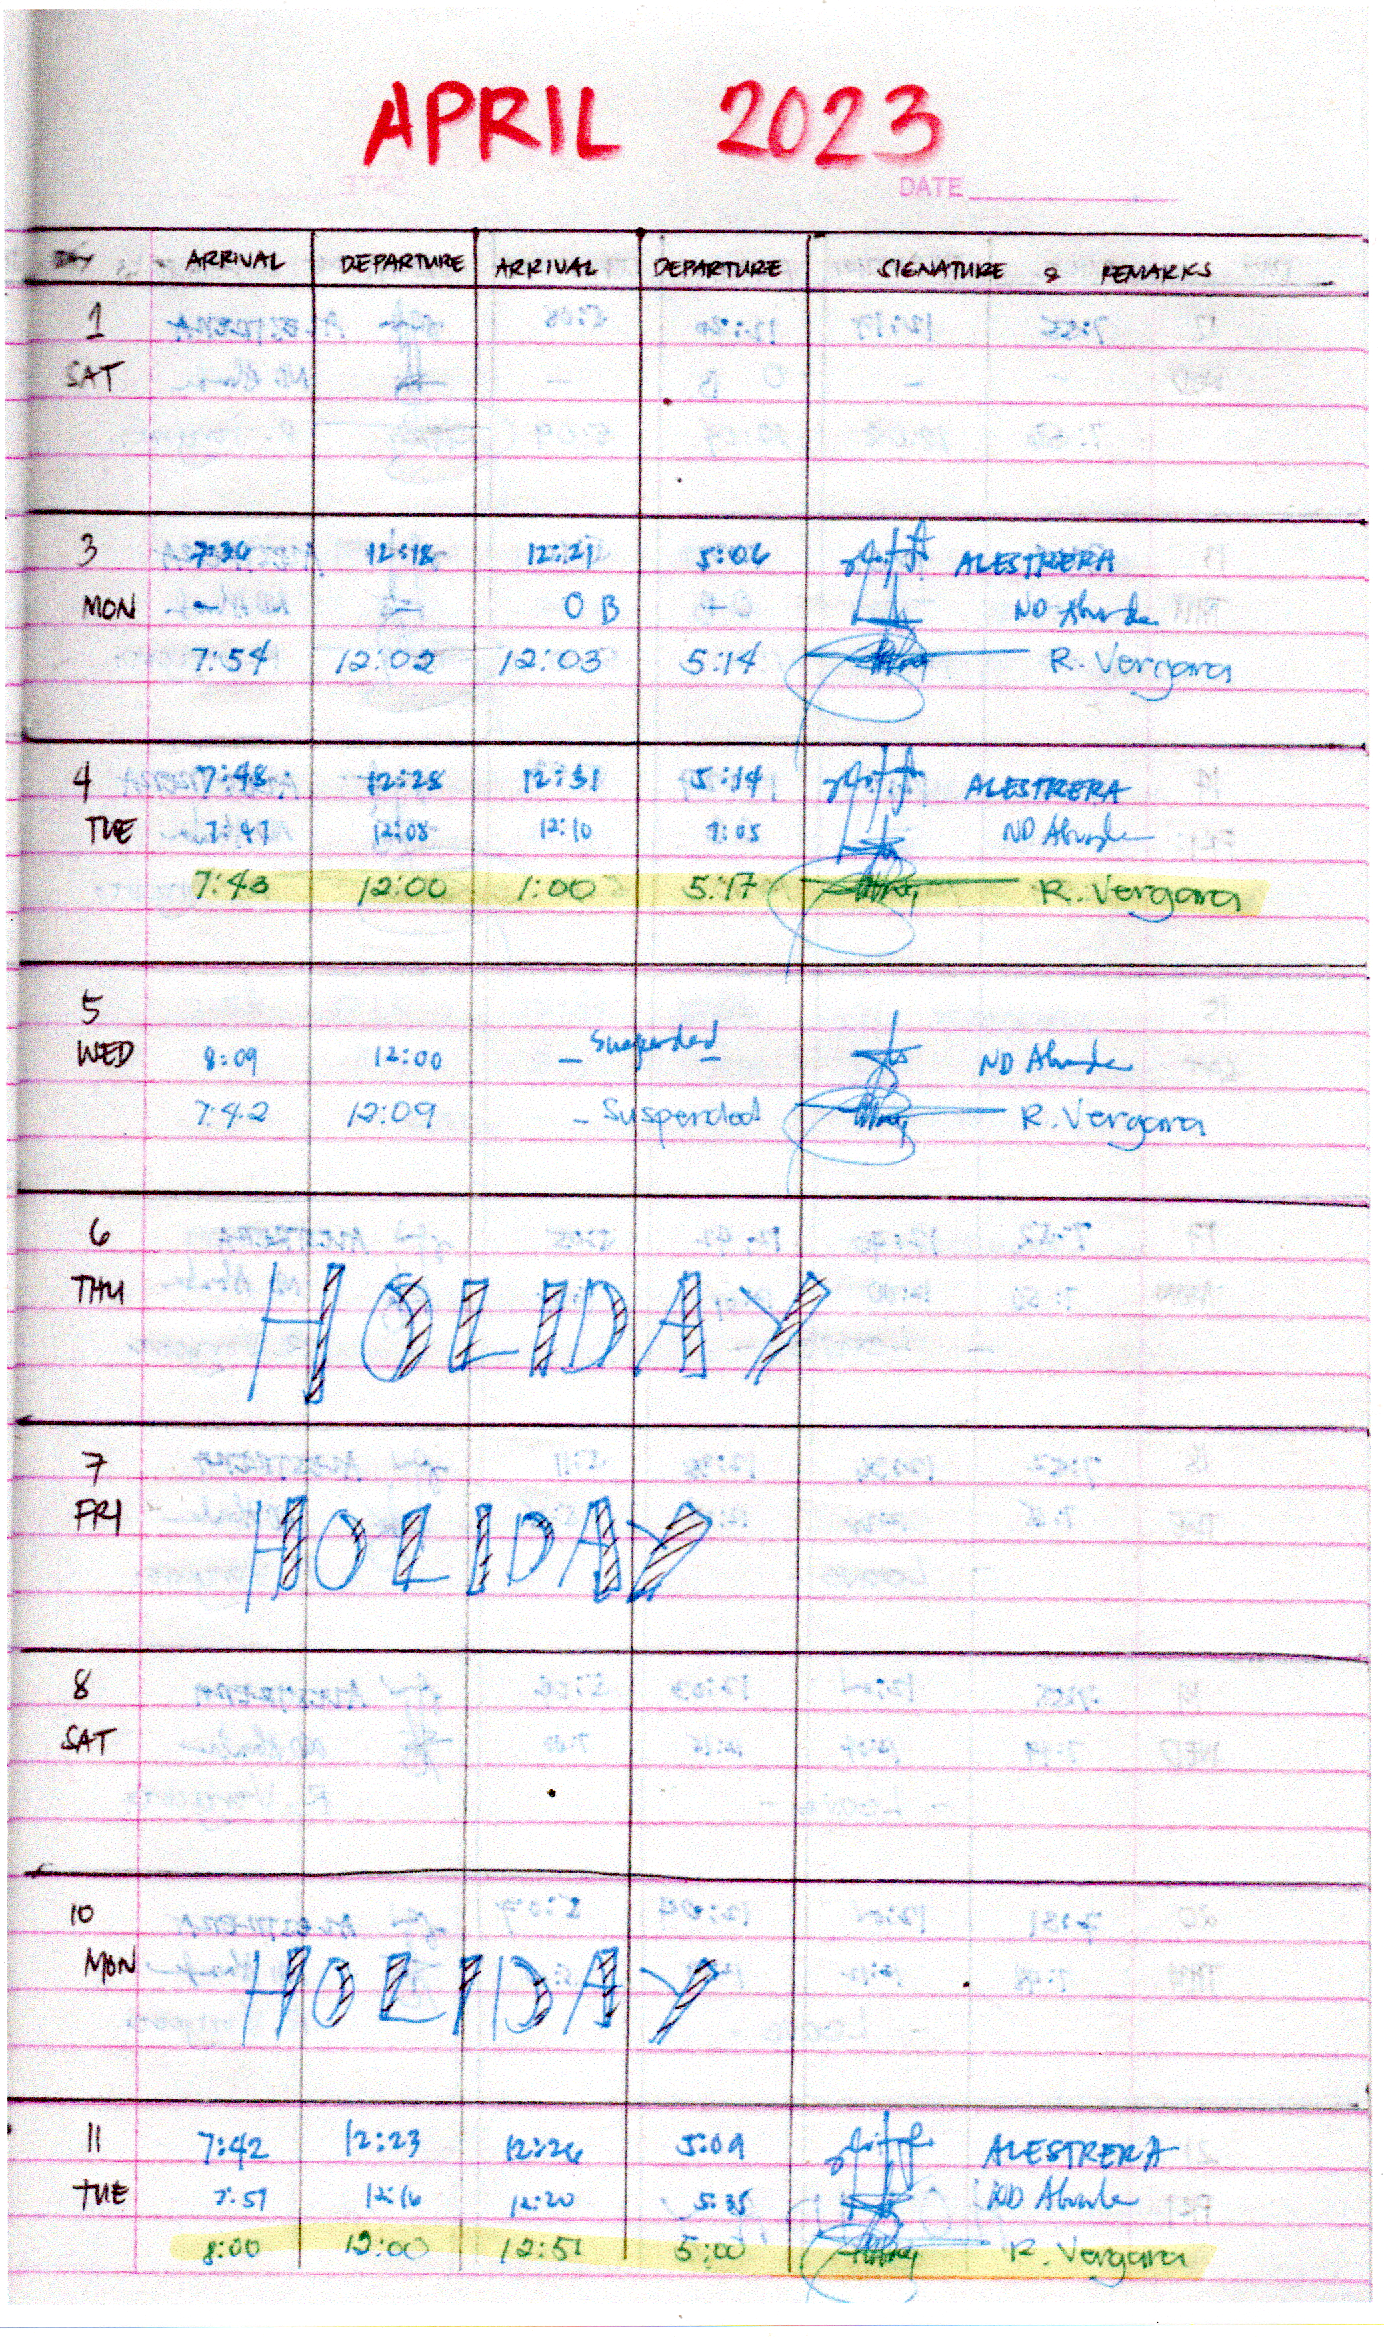 APRIL 2023
DATE
DAY ARRIVAL DEPARTURE ARRIVAL DEPARTURE SIGNATURE & REMARKS
1
SAT
3 7:36 12:18 12:21 5:06 ALESTRERA
MON O B ND
7:54 12:02 12:03 5:14 R. Vergara
4 7:48 12:28 12:31 5:14 ALESTRERA
TUE 7:47 12:08 12:10 7:05 ND
7:43 12:00 1:00 5:17 R. Vergara
5
WED 8:09 12:00 – Suspended – ND
7:42 12:09 – Suspended R. Vergara
6
THU HOLIDAY
7
FRI HOLIDAY
8
SAT
10
MON HOLIDAY
11 7:42 12:23 12:26 5:09 ALESTRERA
TUE 7:51 12:16 12:20 5:35 ND
8:00 12:00 12:51 5:00 R. Vergara